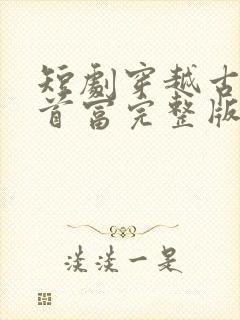 短劇穿越古
首富完整版
淡淡一是